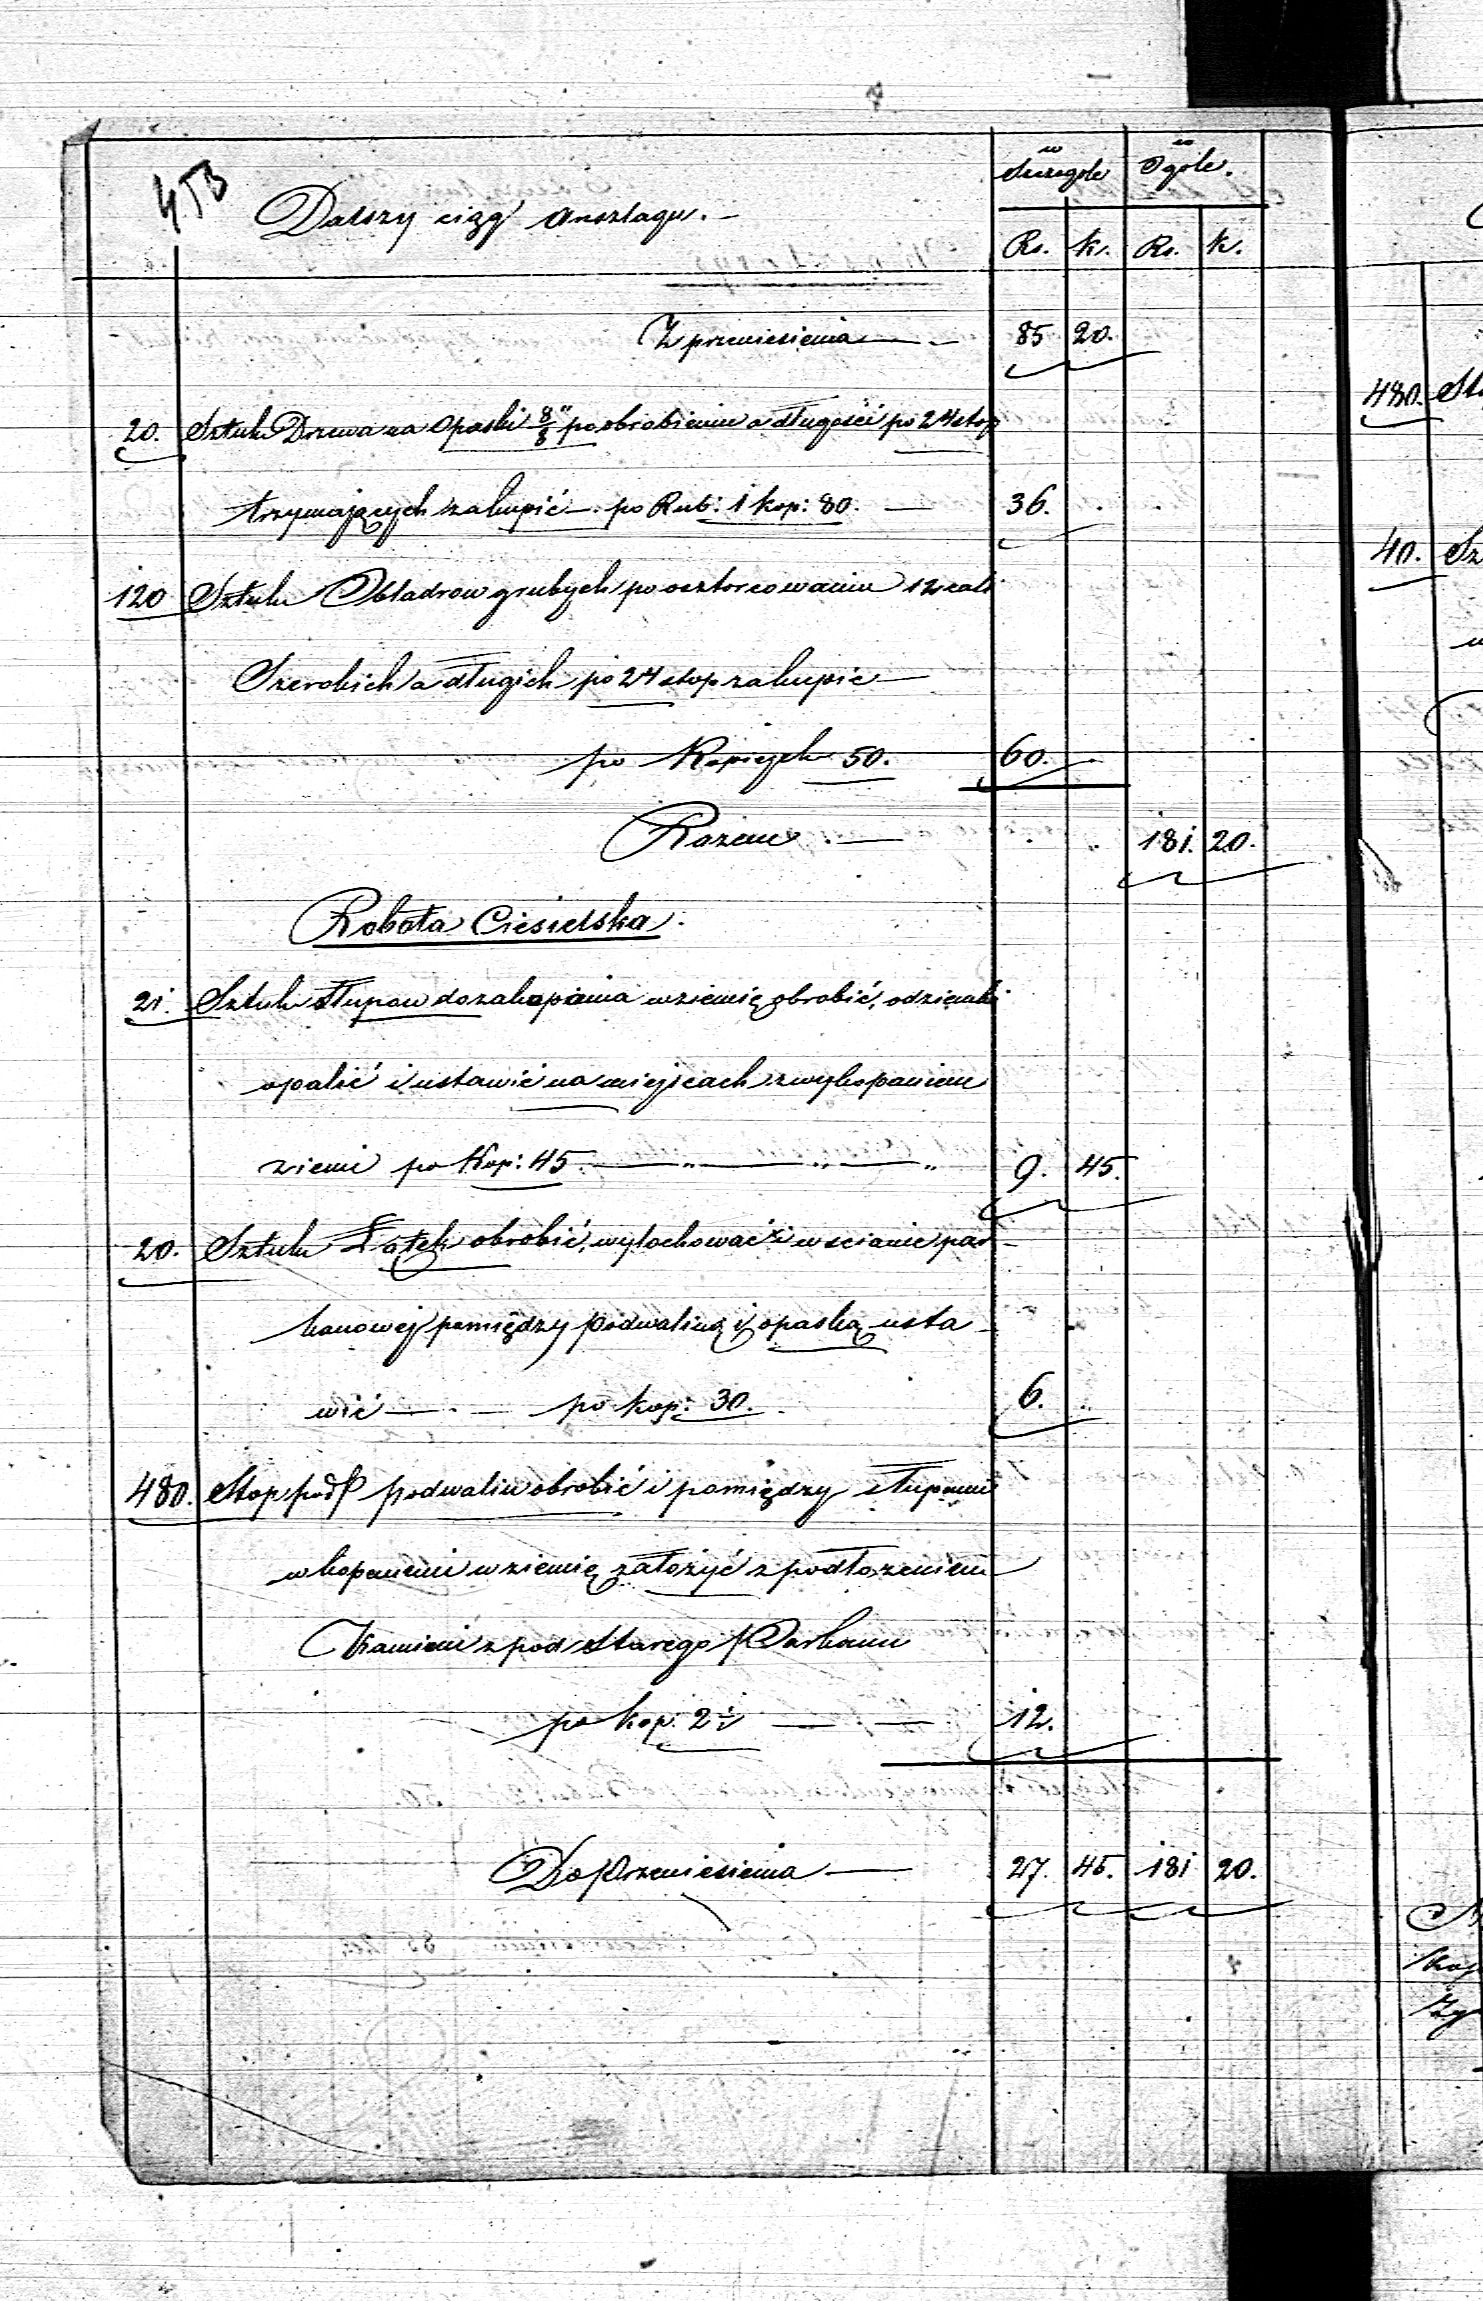 453
w Szczegole w Ogole.
Dalszy ciąg Anszlagu.
Rs. K. Rs. K.
Z przeniesienia 85 20.
20. Sztuk Drzewa na Opaski 8/8" po obrobieniu a długości po 24 stop
trzymających zakupić po Rub: 1 kop: 80. 36.
120 Sztuk Obladrow grubych po osztorcowaniu 12 cali
Szerokich a długich po 24 stop zakupić
po Kopiejek 50. 60.
Razem 181. 20.
Robota Ciesielska.
21. Sztuk słupow do zakopania w ziemię obrobić, odziemki
opalić i ustawić na miejscach z wykopaniem
ziemi po Kop: 45 9. 45.
20. Sztuk Łątek obrobić, wyfochować i w scianie par
kanowej pomiędzy podwaliną i opaską usta
wić po kop: 30. 6.
480. Stop podł podwalin obrobić i pomiędzy słupami
wkopanemi w ziemię założyć z podłożeniem
Kamieni z pod starego Parkanu
po kop: 2½ 12.
Do Przeniesienia 27. 45. 181 20.
480. St
40. Sz
w
kop